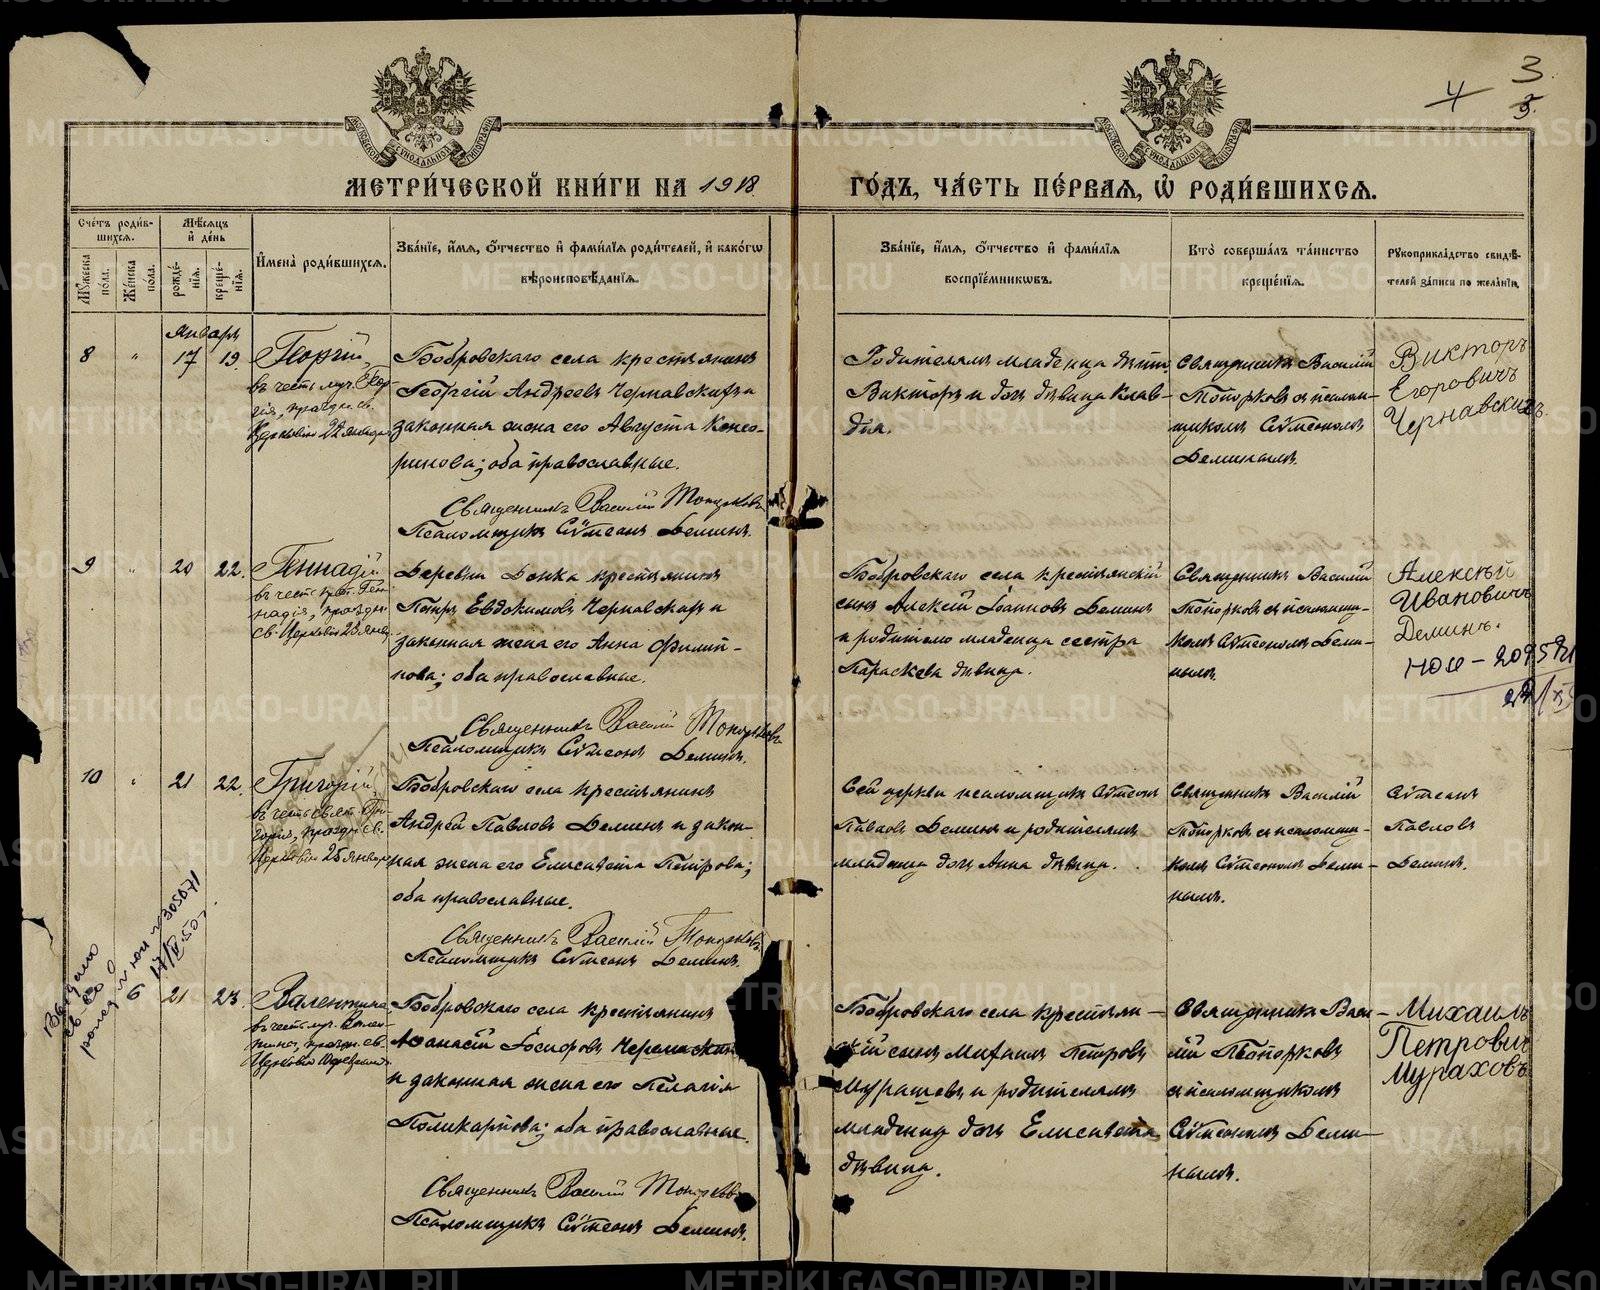 3
4
3.
МЕТРИ́ЧЕСКОЙ КНИ́ГИ НА 1918
ГО́ДЪ, ЧА́СТЬ ПЕ́РВАЯ, Ѡ҆ РОДИ́ВШИХСЯ.
Сче́тъ роди́в-
шихся.
Мѣ́сяцъ
и҆ де́нь
Му́жеска
по́ла.
Же́нска
пола.
рожде́-
нїѧ.
креще́-
нїѧ.
И҆мена̀ роди́вшихся.
Зва́нїе, и҆́мя, ѻ҆́тчество и҆ фами́лїя роди́телей, и҆ како́гѡ
вѣроисповѣ́данїя.
Зва́нїе, и҆́мя, ѻ҆́тчество и҆ фами́лїя
воспрїе́мниковъ.
Кто̀ соверша́лъ та́инство
креще́нїя.
Рукоприкла́дство свидѣ́-
телей за́писи по жела́нїю.
Января
8 " 17 19.
Георгій,
въ честь муч. Геор-
гія, праздн. св.
Церковію 22 января
Бобровскаго села крестьянинъ
Георгій Андреевъ Чернавскихъ и
законная жена его Августа
оба православные.
Священникъ Василій Топорковъ
Псаломщикъ Сѵмеонъ Деминъ.
Родителямъ младенца дѣти
Викторъ и дочь дѣвица Клав-
дія.
Священникъ Василій
Топорковъ съ псалом-
щикомъ Сѵмеономъ
Деминымъ.
Викторъ
Егоровичъ
Чернавскихъ.
9 " 20 22.
Геннадій
въ честь Ген-
надія, праздн.
св. Церковію 23 янв.
Деревни крестьянинъ
Петръ Евдокимовъ Чернавскихъ и
законная жена его Анна Филип-
пова; оба православные.
Священникъ Василій Топорковъ
Псаломщикъ Сѵмеонъ Деминъ.
Бобровскаго села крестьянскій
сынъ Алексій Іоанновъ Деминъ
и родителю младенца сестра
Параскева дѣвица.
Священникъ Василій
Топорковъ съ псаломщи-
комъ Сѵмеономъ Деми-
нымъ.
Алексѣй
Ивановичъ
Деминъ.
10 " 21 22.
Григорій,
въ честь свят. Гри-
горія, праздн. св.
Церковію 25 января
Бобровскаго села крестьянинъ
Андрей Павловъ Деминъ и закон-
ная жена его Елисавета Петрова;
оба православные.
Священникъ Василій Топорковъ
Псаломщикъ Сѵмеонъ Деминъ.
Сей церкви псаломщикъ Сѵмеонъ
Павловъ Деминъ и родителямъ
младенца дочь Анна дѣвица.
Священникъ Василій
Топорковъ съ псаломщи-
комъ Сѵмеономъ Деми-
нымъ.
Сѵмеонъ
Павловъ
Деминъ.
Выдано
св-во о
17/IV 50 г.
6 21 23.
Валентина
въ честь муч. Вален-
тины, праздн. св.
Церковію
Бобровскаго села крестьянинъ
Аѳанасій Іосифовъ
и законная жена его Пелагія
Поликарпова; оба православные.
Священникъ Василій Топорковъ
Псаломщикъ Сѵмеонъ Деминъ.
Бобровскаго села крестьян-
скій сынъ Михаилъ Петровъ
и родителямъ
младенца дочь Елисавета
дѣвица.
Священникъ Васи-
лій Топорковъ
съ псаломщикомъ
Сѵмеономъ Деми-
нымъ.
Михаилъ
Петровичъ
Мураховъ
METRIKI.GASO-URAL.RU